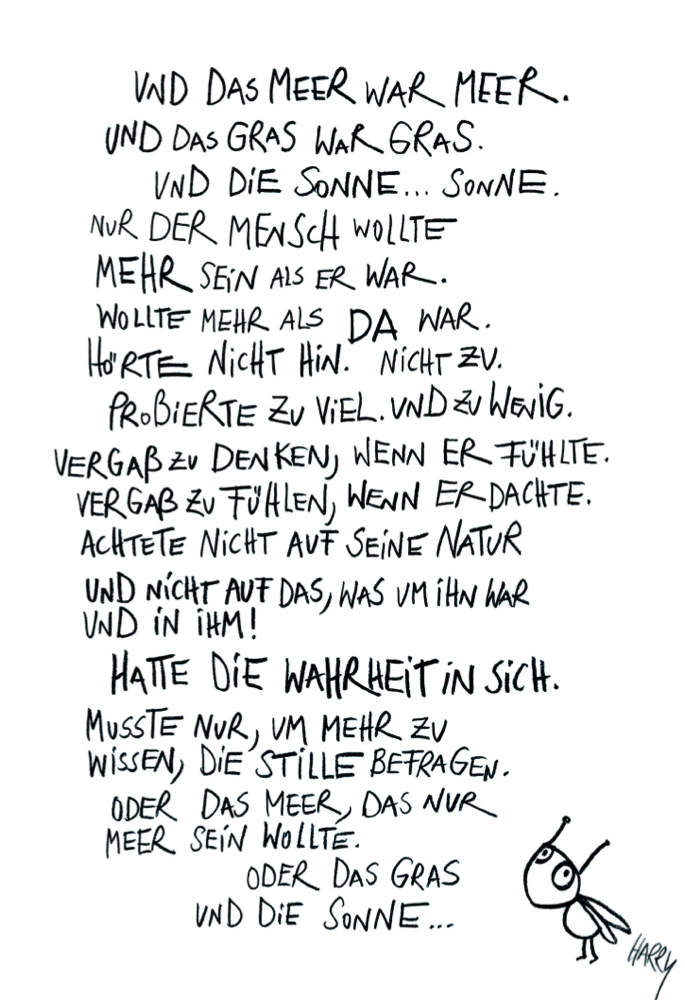 UND DAS MEER WAR MEER.
UND DAS GRAS WAR GRAS.
UND DIE SONNE... SONNE.
NUR DER MENSCH WOLLTE
MEHR SEIN ALS ER WAR.
WOLLTE MEHR ALS DA WAR.
HÖRTE NICHT HIN. NICHT ZU.
PROBIERTE ZU VIEL. UND ZU WENIG.
VERGAß ZU DENKEN, WENN ER FÜHLTE.
VERGAß ZU FÜHLEN, WENN ER DACHTE.
ACHTETE NICHT AUF SEINE NATUR
UND NICHT AUF DAS, WAS UM IHN WAR
UND IN IHM!
HATTE DIE WAHRHEIT IN SICH.
MUSSTE NUR, UM MEHR ZU
WISSEN, DIE STILLE BEFRAGEN.
ODER DAS MEER, DAS NUR
MEER SEIN WOLLTE.
ODER DAS GRAS
UND DIE SONNE...
HARRY